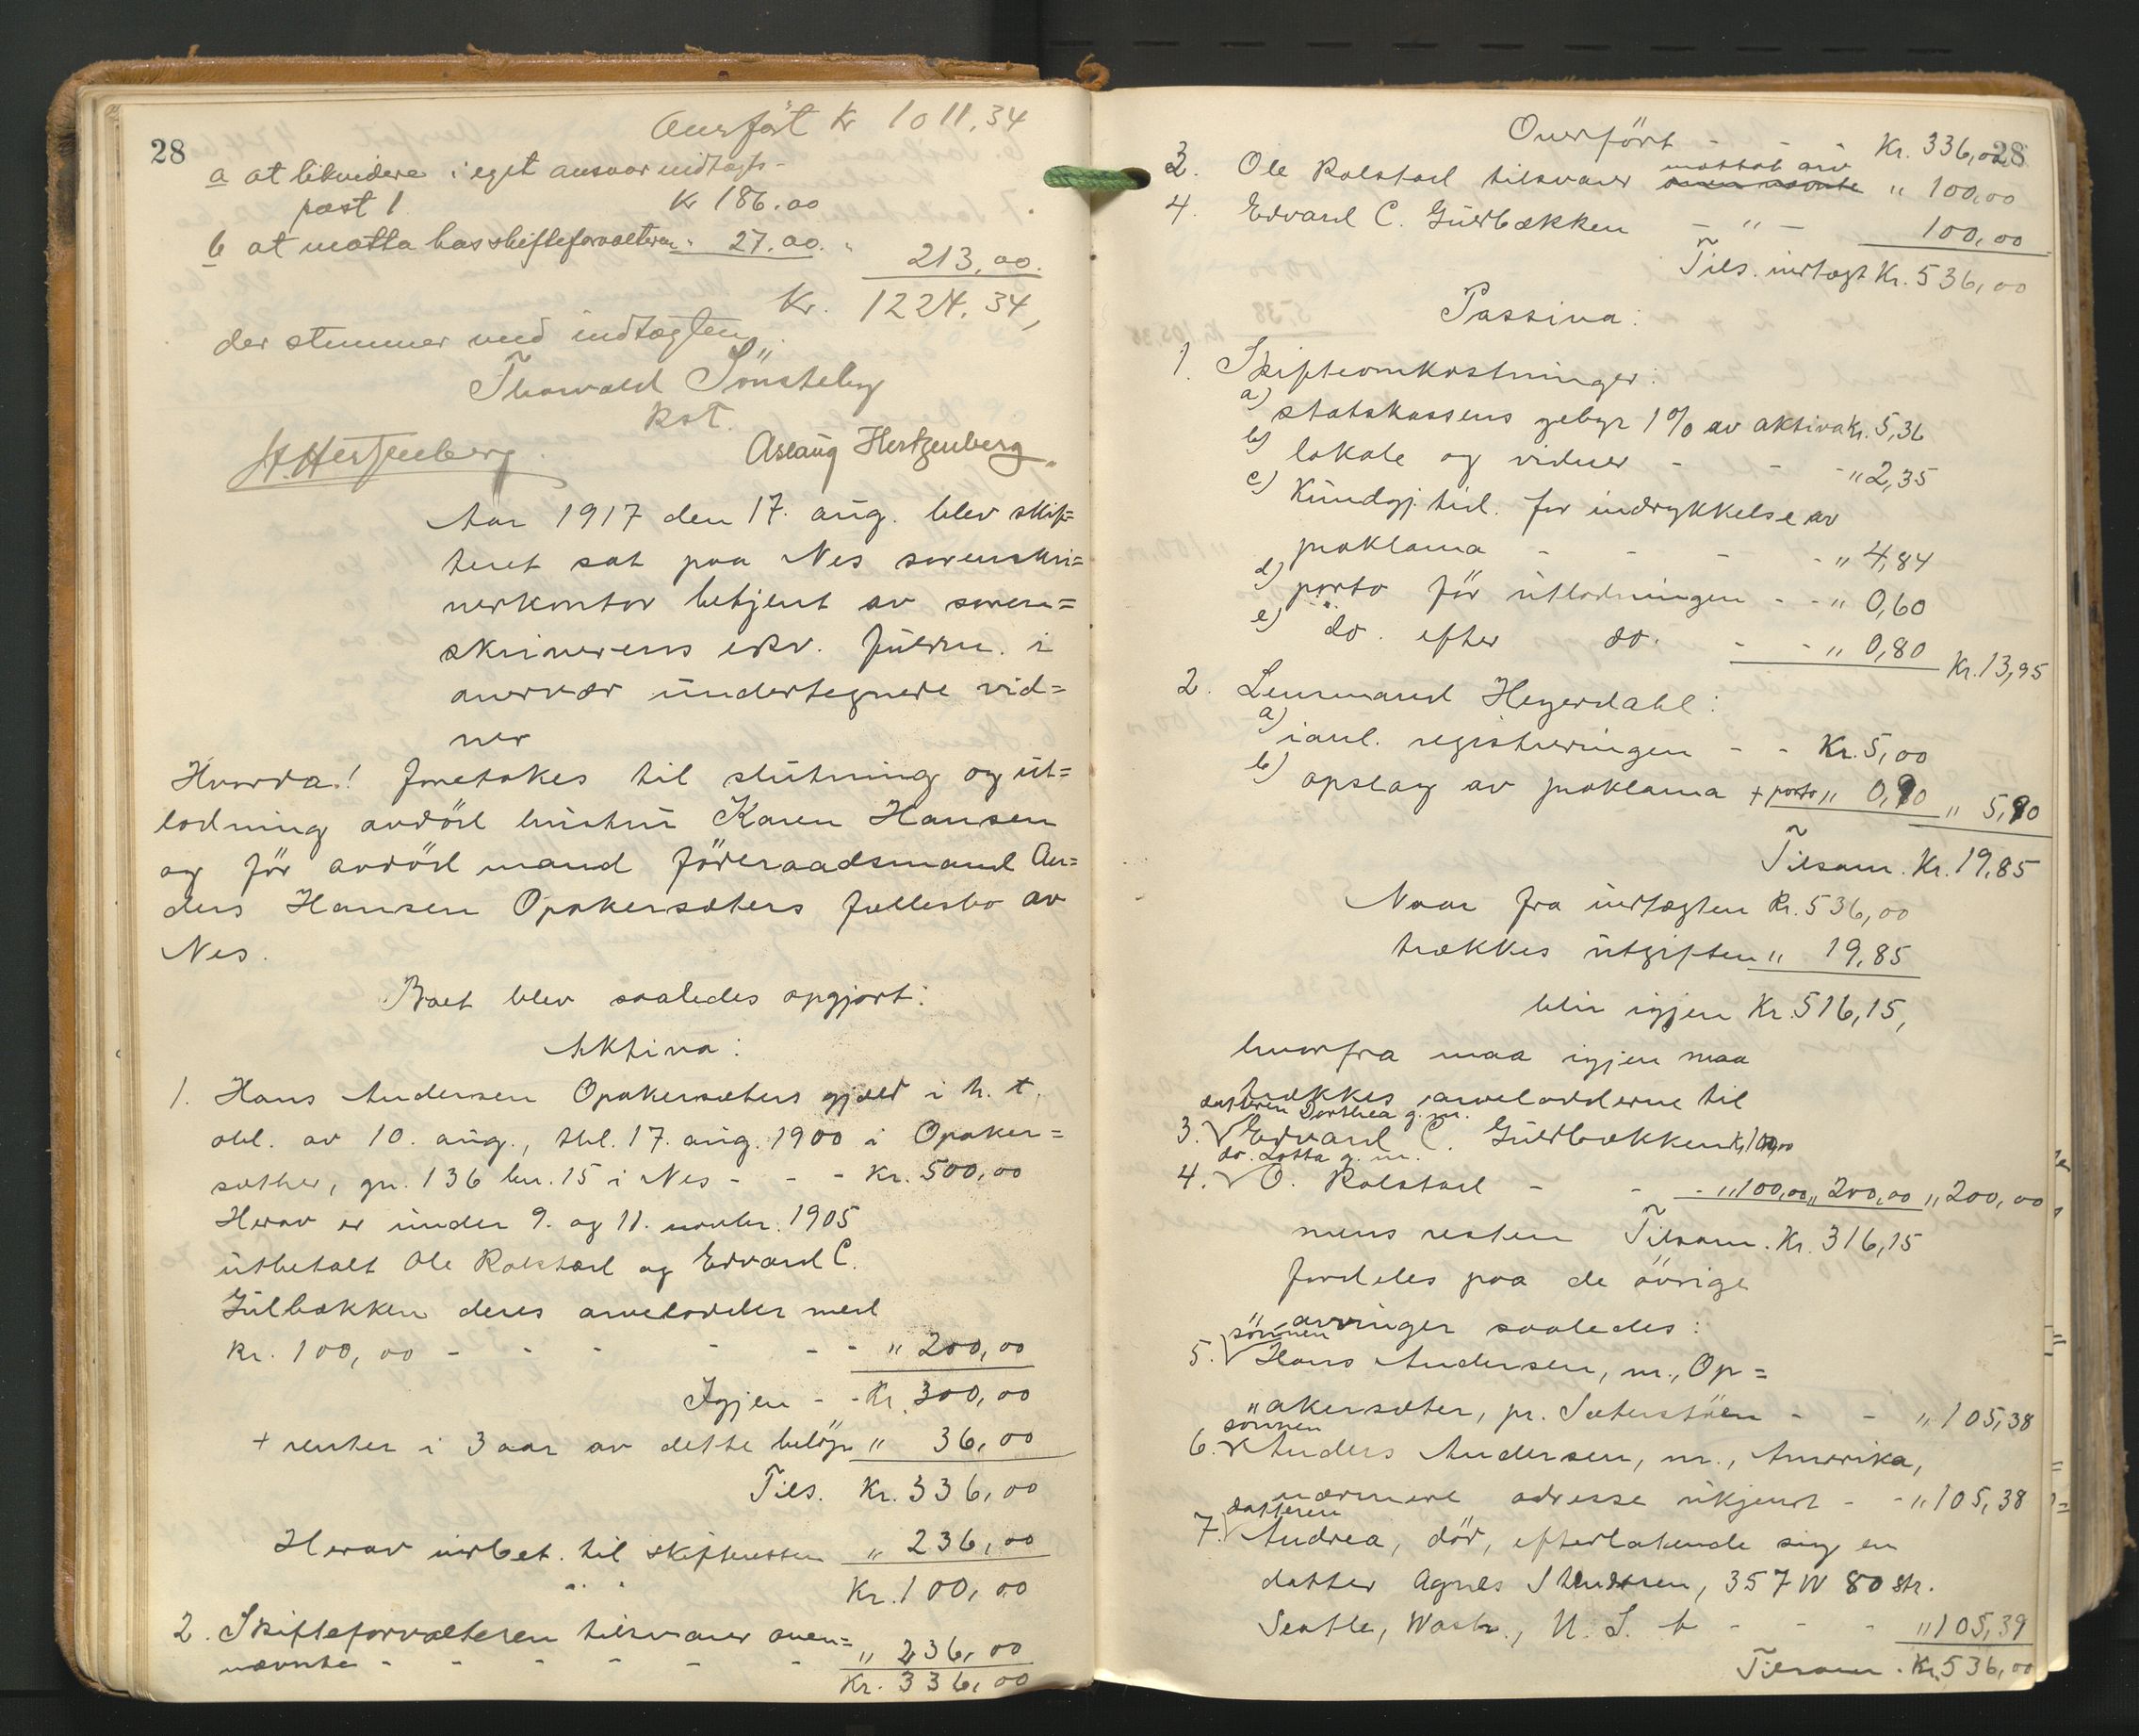 28
Overført Kr 1011.34
a at likvidere i eget ansvar indtægts-
post 1 Kr 186.00
b at motta hos skifteforvalteren " 27.00 "
213,00.
Kr. 1224.34,
der stemmer med indtægten.
Thorvald Sönsteby
kst.
H. Hertzenberg Aslaug Hertzenberg
Aar 1917 den 17. aug. blev skif=
teret sat paa Nes sorenskri=
verkontor betjent av soren=
skriverens edsv. fuldm. i
overvær undertegnede vid=
ner
Hvorda! foretokes til slutning og ut=
lodning avdöd hustru Karen Hansen
og för avdöd mand föderaadsmand An=
ders Hansen Opakersæters fællesbo av
Nes.
Boet blev saaledes opgjort:
Aktiva:
1. Hans Andersen Opakersæters gjæld i h. t.
obl. av 10. aug., tbl. 17. aug. 1900 i Opaker=
sæther, gn. 136 bn. 15 i Nes - - - Kr. 500,00
Herav er under 9. og 11. novbr. 1905
utbetalt Ole Rolstad og Edvard C.
Gulbækken deres arvelodder med
Kr. 100,00 - - - - - - " 200,00
Igjen - - Kr. 300,00
+ renter i 3 aar av dette belöp " 36,00
Tils. Kr. 336,00
Herav indbet. til skifteretten " 236,00
Kr. 100,00
2. Skifteforvalteren tilsvarer oven=
nævnte - - - - - - " 236,00
Kr. 336,00
28
Overfört - - - Kr. 336,00
mottat arv
3. Ole Rolstad tilsvarer oven nævnte " 100,00
4. Edvard C. Guldbækken - " - 100,00
Tils. indtægt Kr. 536,00
Passiva:
1. Skifteomkostninger:
a) statskassens gebyr 1% av aktiva Kr. 5,36
b) lokale og vidner - - - " 2,35
c) Kundgj. tid. for indrykkelse av
proklama - - - - " 4,84
d) porto för utlodningen - - " 0,60
e) do. efter do. - - " 0,80 Kr. 13,95
2. Lensmand Heyerdahl:
a) i anl. registreringen - - Kr. 5,00
b) opslag av proklama + porto " 0,90 " 5,90
Tilsam. Kr. 19,85
Naar fra indtægten Kr. 536,00
trækkes utgiften " 19,85
blir igjen Kr. 516,15,
hvorfra maa igjen maa
trækkes arvelodderne til
datteren Dorthea g. m.
3. Edvard C. Guldbækken Kr. 100,00
do. Lotta g. m.
4. O. Rolstad - - - " 100,00 " 200,00 " 200,00
mens resten Tilsam. Kr. 316,15
fordeles paa de övrige
arvinger saaledes:
sönnen
5. Hans Andersen, m., Op=
akersæter, pr. Sæterstöen - - " 105,38
sönnen
6. Anders Andersen, m., Amerika,
nærmere adresse ukjendt - - " 105,38
datteren
7. Andrea, död, efterlatende sig en
datter Agnes 357 W 80 str.
Seatle, Wash., U. S. A - - - " 105,39
Tilsam. Kr. 536,00